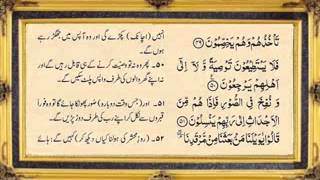 تَأْخُذُهُمْ وَهُمْ يَخِصِّمُونَ ﴿۴۹﴾
فَلَا يَسْتَطِيعُونَ تَوْصِيَةً وَّلَآ اِلٰٓى
اَهْلِهِمْ يَرْجِعُوْنَ ﴿۵۰﴾
وَنُفِخَ فِى الصُّوْرِ فَاِذَا هُمْ مِّنَ
الْاَجْدَاثِ اِلٰى رَبِّهِمْ يَنْسِلُوْنَ ﴿۵۱﴾
قَالُوْا يٰوَيْلَنَا مَنْۢ بَعَثَنَا مِنْ مَّرْقَدِنَا
انہیں (اچانک) پکڑے گی اور وہ آپس میں جھگڑ رہے
ہوں گے۔
۵۰۔ پھر وہ نہ تو وصیت کرنے کے ہی قابل رہیں گے اور
نہ اپنے گھر والوں کی طرف واپس پلٹ سکیں گے۔
۵۱۔ اور (جس وقت دوبارہ) صور پھونکا جائے گا تو وہ فوراً
قبروں سے نکل کر اپنے رب کی طرف دوڑ پڑیں گے۔
۵۲۔ (روزِ محشر کی ہولناکیاں دیکھ کر) کہیں گے: ہائے